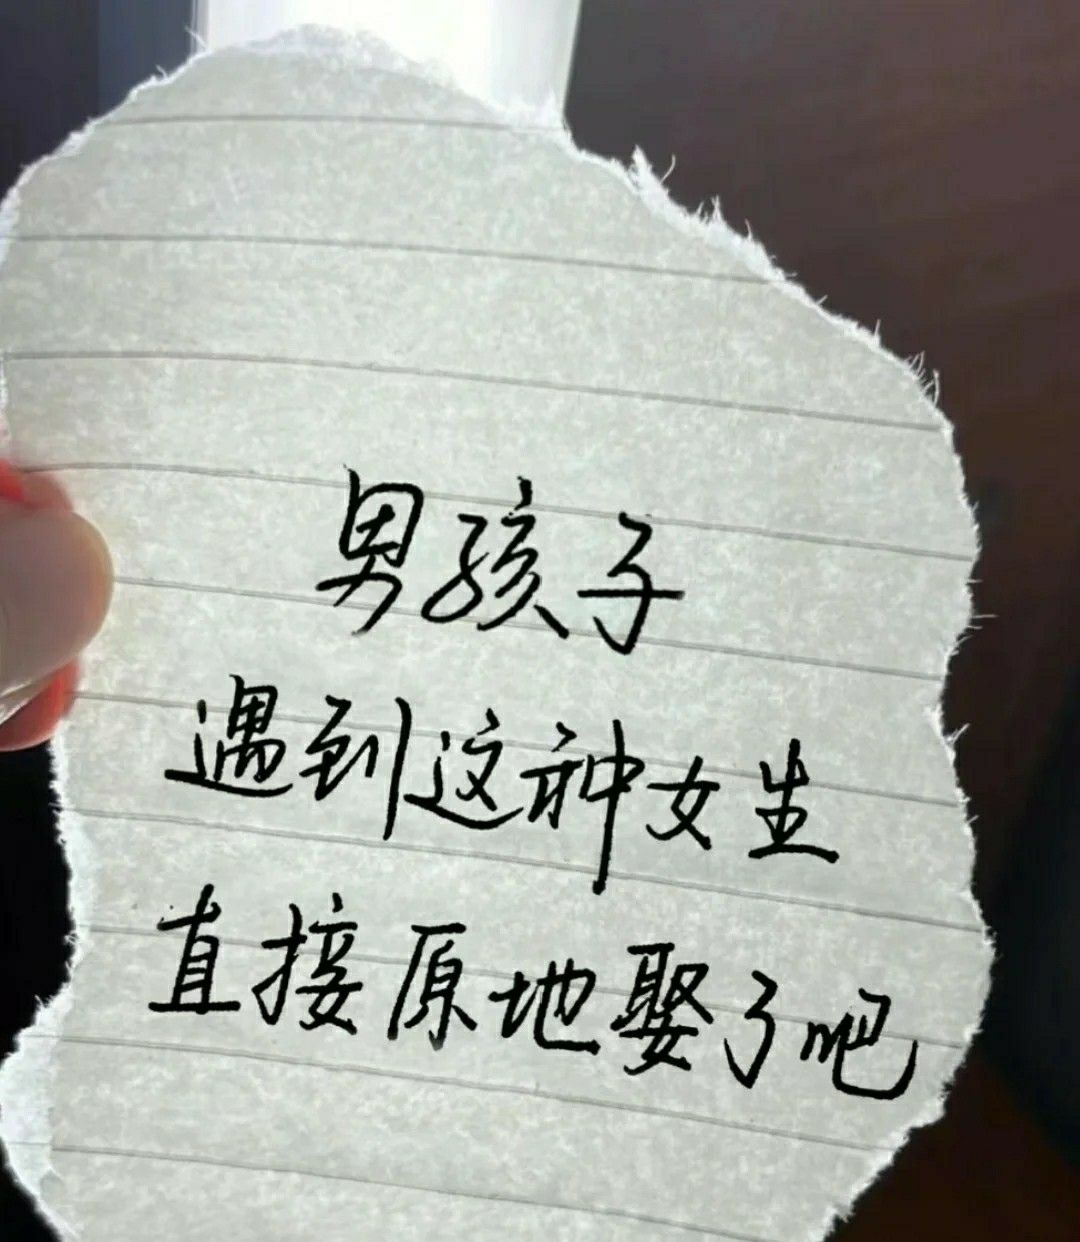 男孩子
遇到这种女生
直接原地娶了吧